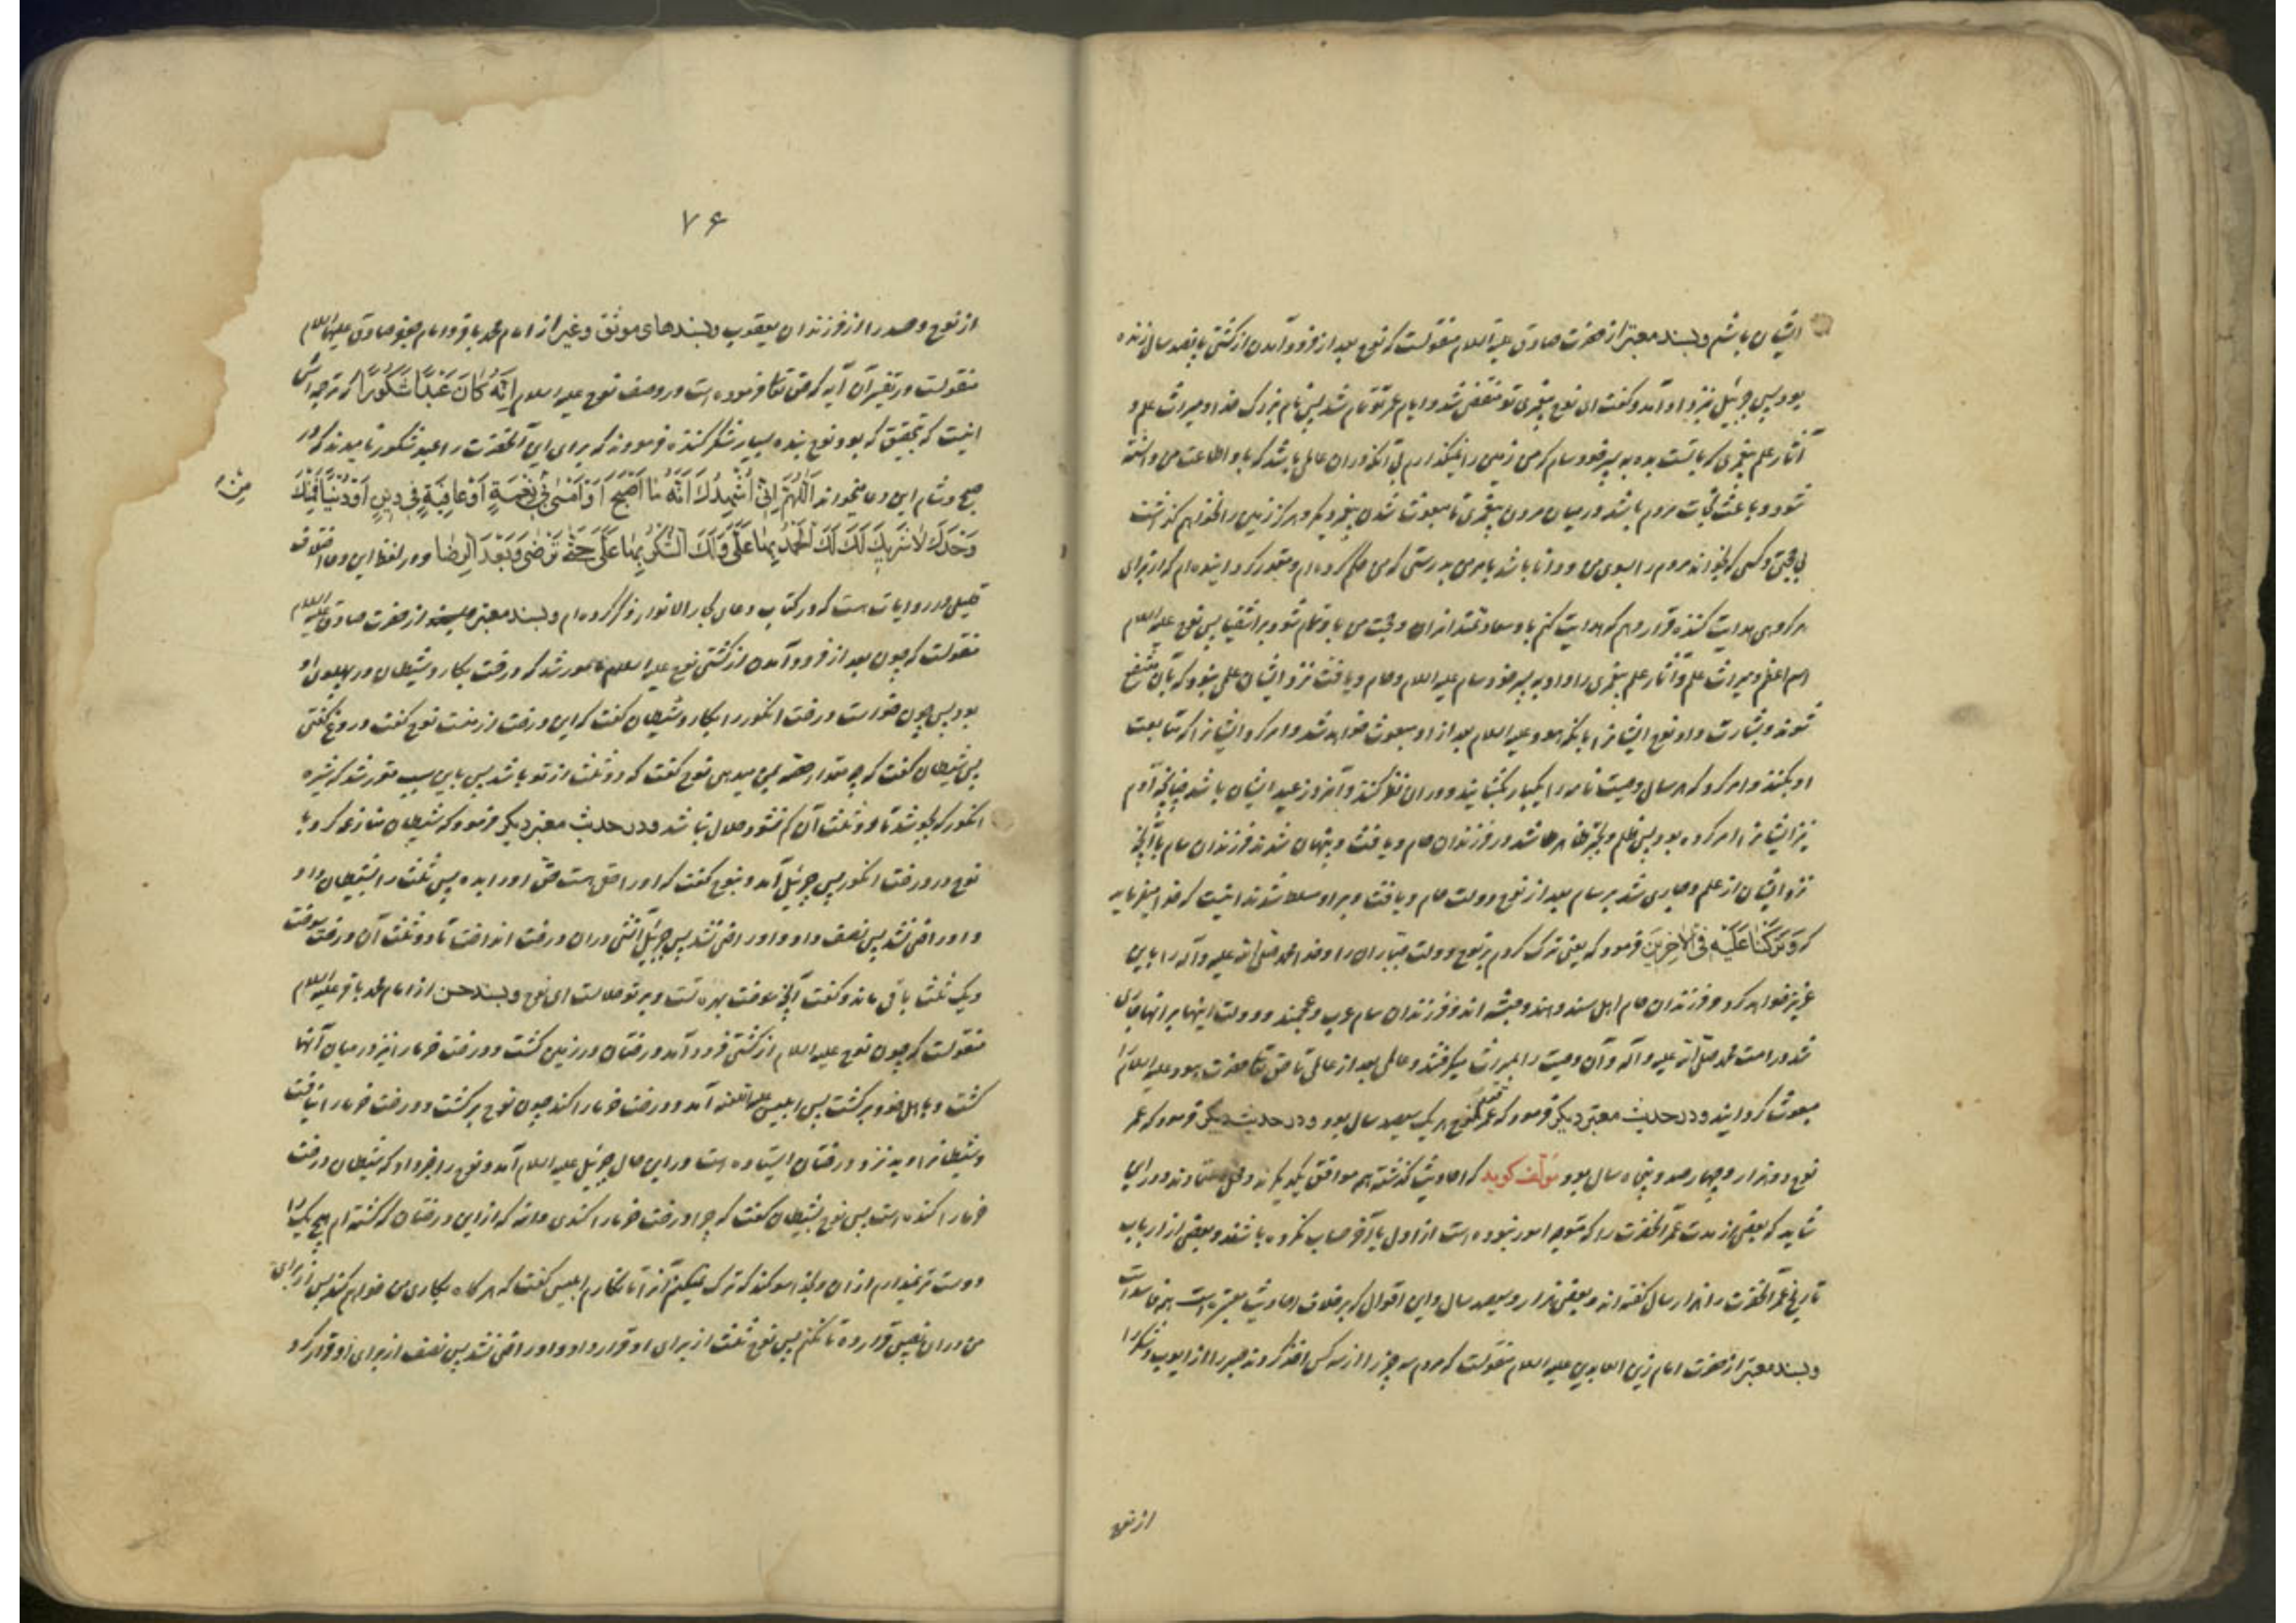 ایشان باشم و بسند معتبر از حضرت صادق علیه السلام منقولست که نوح بعد از فرود آمدن از کشتی پانصد سال زنده
بود پس جبرئیل نزد او آمد و گفت ای نوح پیغمبری تو منقضی شد و ایام عمر تو تمام شد پس نام بزرک خدا و میراث علم و
آثار علم پیغمبری که با تست بده به پسر خود سام که من زمین را نمیگذارم بی آنکه در ان عالمی باشد که باو اطاعت من دانسته
شود و باعث نجات مردم باشد در میان مردن پیغمبری تا مبعوث شدن پیغمبر دیکر و هرکز زمین را نخواهم گذاشت
بی حجتی و کسی که بخواند مردم را بسوی من و دانا باشد بامر من بدرستی که من حکم کرده ام و مقدر کردانیده ام که از برای
هر کروهی هدایت کننده قرار دهم که هدایت کنم باو سعادتمندان و حجت من باو تمام شود بر اشقیا پس نوح علیه السلام
اسم اعظم و میراث علم و آثار علم پیغمبری را داد به پسر خود سام علیه السلام و حام و یافث نزد ایشان علمی نبود که بآن منتفع
شوند و بشارت داد نوح ایشانرا بانکه هود علیه السلام بعد از او مبعوث خواهد شد و امر کرد ایشانرا که متابعت
او بکنند و امر کرد که هر سال وصیت نامه را یکبار بکشایند و در ان نظر کنند و آنروز عید ایشان باشد چنانچه آدم
نیز ایشانرا امر کرده بود پس ظلم و تجبر ظاهر شد در فرزندان حام و یافث و پنهان شدند فرزندان سام با آنچه
نزد ایشان از علم و جاری شد بر سام بعد از نوح دولت حام و یافث و بر او مسلط شدند اینست که خدا میفرماید
که وَتَرَكْنَا عَلَيْهِ فِي الْآخِرِينَ فرمود که یعنی ترک کردم بر نوح دولت جباران را و خدا محمد صلی الله علیه و آله را باین
عزیز خواهد کرد و فرزندان حام اهل سند و هند و حبشه اند و فرزندان سام عرب و عجمند و دولت اینها بر انها جاری
شد در امت محمد صلی الله علیه و آله و آن وصیت را بمیراث میکرفتند عالمی بعد از عالمی تا حق تعالی حضرت هود علیه السلام را
مبعوث کردانید و در حدیث معتبر دیکر فرمود که عمر قوم نوح هر یک سیصد سال بود و در حدیث دیکر فرمود که عمر
نوح دو هزار و چهار صد و پنجاه سال بود مؤلف کوید که احادیث گذشته هم موافق یکدیکرند و در این
شاید که بعضی از مدت عمر آنحضرت را که متوجه امور نبوده است از اول یا آخر حساب نکرده باشند و بعضی از ارباب
تاریخ عمر آنحضرت را هزار سال گفته اند و بعضی هزار و سیصد سال و این اقوال که بر خلاف احادیث معتبره است
و بسند معتبر از حضرت امام زین العابدین علیه السلام منقولست که مردم سه چیز را از سه کس اخذ کردند صبر را از ایوب و شکر را
از نوح
۷۶
از نوح و حسد را از فرزندان یعقوب و بسندهای موثق و غیر از امام محمد باقر و امام جعفر صادق علیهما السلام
منقولست در تفسیر آن آیه که حق تعالی فرموده است در وصف نوح علیه السلام إِنَّهُ كَانَ عَبْدًا شَكُورًا که ترجمه اش
اینست که بتحقیق که بود نوح بنده بسیار شکر کننده فرمودند که برای این آنحضرت را عبد شکور نامیدند که در
صبح و شام این دعا میخواند اَللّٰهُمَّ اِنّي اُشْهِدُكَ اَنَّهُ مَا اَصْبَحَ اَوْ اَمْسٰى بي مِنْ نِعْمَةٍ اَوْ عَافِيَةٍ في دِينٍ اَوْ دُنْيَا فَمِنْكَ
وَحْدَكَ لَا شَرِيكَ لَكَ لَكَ الْحَمْدُ بِهَا عَلَيَّ وَلَكَ الشُّكْرُ بِهَا عَلَيَّ حَتّٰى تَرْضٰى وَبَعْدَ الرِّضَا و در لفظ این دعا اختلاف
قلیلی در روایات هست که در کتاب دعای بحار الانوار ذکر کرده ام و بسند معتبر از حضرت صادق علیه السلام
منقولست که چون بعد از فرود آمدن از کشتی نوح علیه السلام مامور شد که درخت بکارد شیطان در پهلوی او
بود پس چون خواست درخت انکور را بکارد شیطان کفت که این درخت از منست نوح کفت دروغ کفتی
پس شیطان کفت که چه مقدار حصه بمن میدهی نوح کفت که دو ثلث از تو باشد پس باین سبب مقرر شد که شیره
انکور که بجوشد تا دو ثلث آن کم نشود حلال نباشد و در حدیث معتبر دیکر فرمود که شیطان منازعه کرد با
نوح در درخت انکور پس جبرئیل آمد و بنوح کفت که او را حق هست حق او را بده پس ثلث را بشیطان داد
و او راضی نشد پس نصف داد و او راضی نشد پس جبرئیل آتشی در ان درخت انداخت تا دو ثلث آن درخت سوخت
و یک ثلث باقی ماند و کفت آنچه سوخت بهره تست و بر تو حلالست ای نوح و بسند حسن از امام محمد باقر علیه السلام
منقولست که چون نوح علیه السلام از کشتی فرود آمد درختان در زمین کشت و درخت خرما را نیز در میان آنها
کشت و باهل خود برکشت پس ابلیس علیه اللعنه آمد و درخت خرما را کند چون نوح برکشت و درخت خرما را نیافت
و شیطانرا دید نزد درختان ایستاده است در این حال جبرئیل علیه السلام آمد و نوح را خبر داد که شیطان درخت
خرما را کنده است پس نوح بشیطان کفت که چرا درخت خرما را کندی والله که از این درختان که کشته ام هیچ یک را
دوست تر نمیدارم از ان و بخدا سوکند که ترک نمیکنم آنرا تا بکارم ابلیس کفت که هر کاه بکاری من خواهم کند پس از برای
من در ان نصیبی قرار ده تا نکنم پس نوح ثلث از برای او قرار داد و او راضی نشد پس نصف از برای او قرار کرد